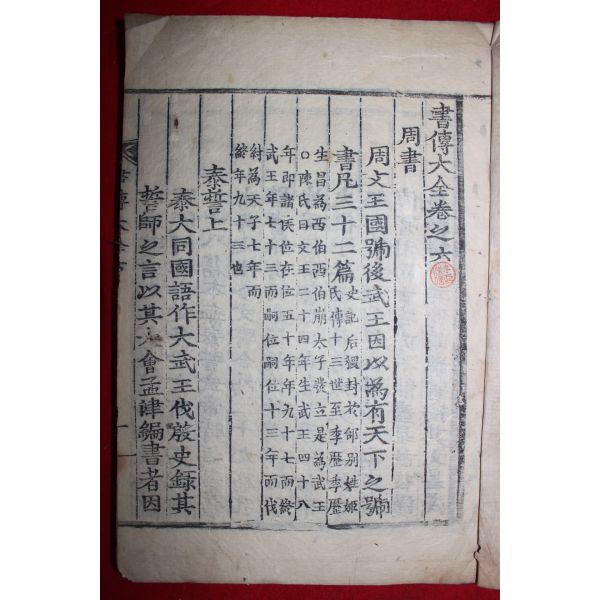 書傳大全卷之六
周書
周文王國號後武王因以為有天下之號
書凡三十二篇
史記后稷封於邰別姓姬
氏傳十三世至季歷季歷
生昌為西伯西伯崩太子發立是為武王
○陳氏曰文王二十四年生武王四十八
年即諸侯位在位五十年年九十七而終
武王年七十三而嗣位十三年而伐
紂為天子七年而
終年九十三也
泰誓上
泰大同國語作大武王伐殷史錄其
誓師之言以其大會孟津編書者因
書傳大全